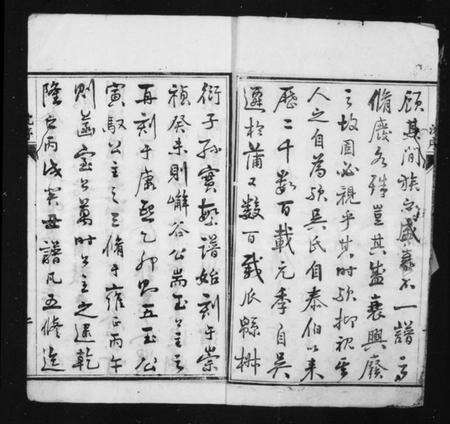 顧其間族有盛衰不一譜有
脩廢各殊豈其盛衰興廢
之故固必視乎其時歟抑視乎
人之自為歟吳氏自泰伯以來
歷二千數百載元季自吳
遷於蒲又數百載瓜縣椒
衍子孫實繁譜始刻于崇
禎癸未則嶰谷公耑玉公主之
再刻于康熙乙卯則五玉公
寅馭公主之三脩于雍正丙午
則蓋宣公萬時公主之還乾
隆之丙戌癸丑譜凡五修迄